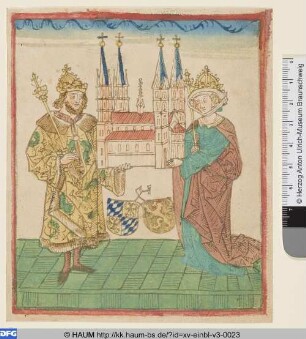 © Herzog Anton Ulrich-Museum Braunschweig
DFG
© HAUM http://kk.haum-bs.de/?id=xv-einbl-v3-0023